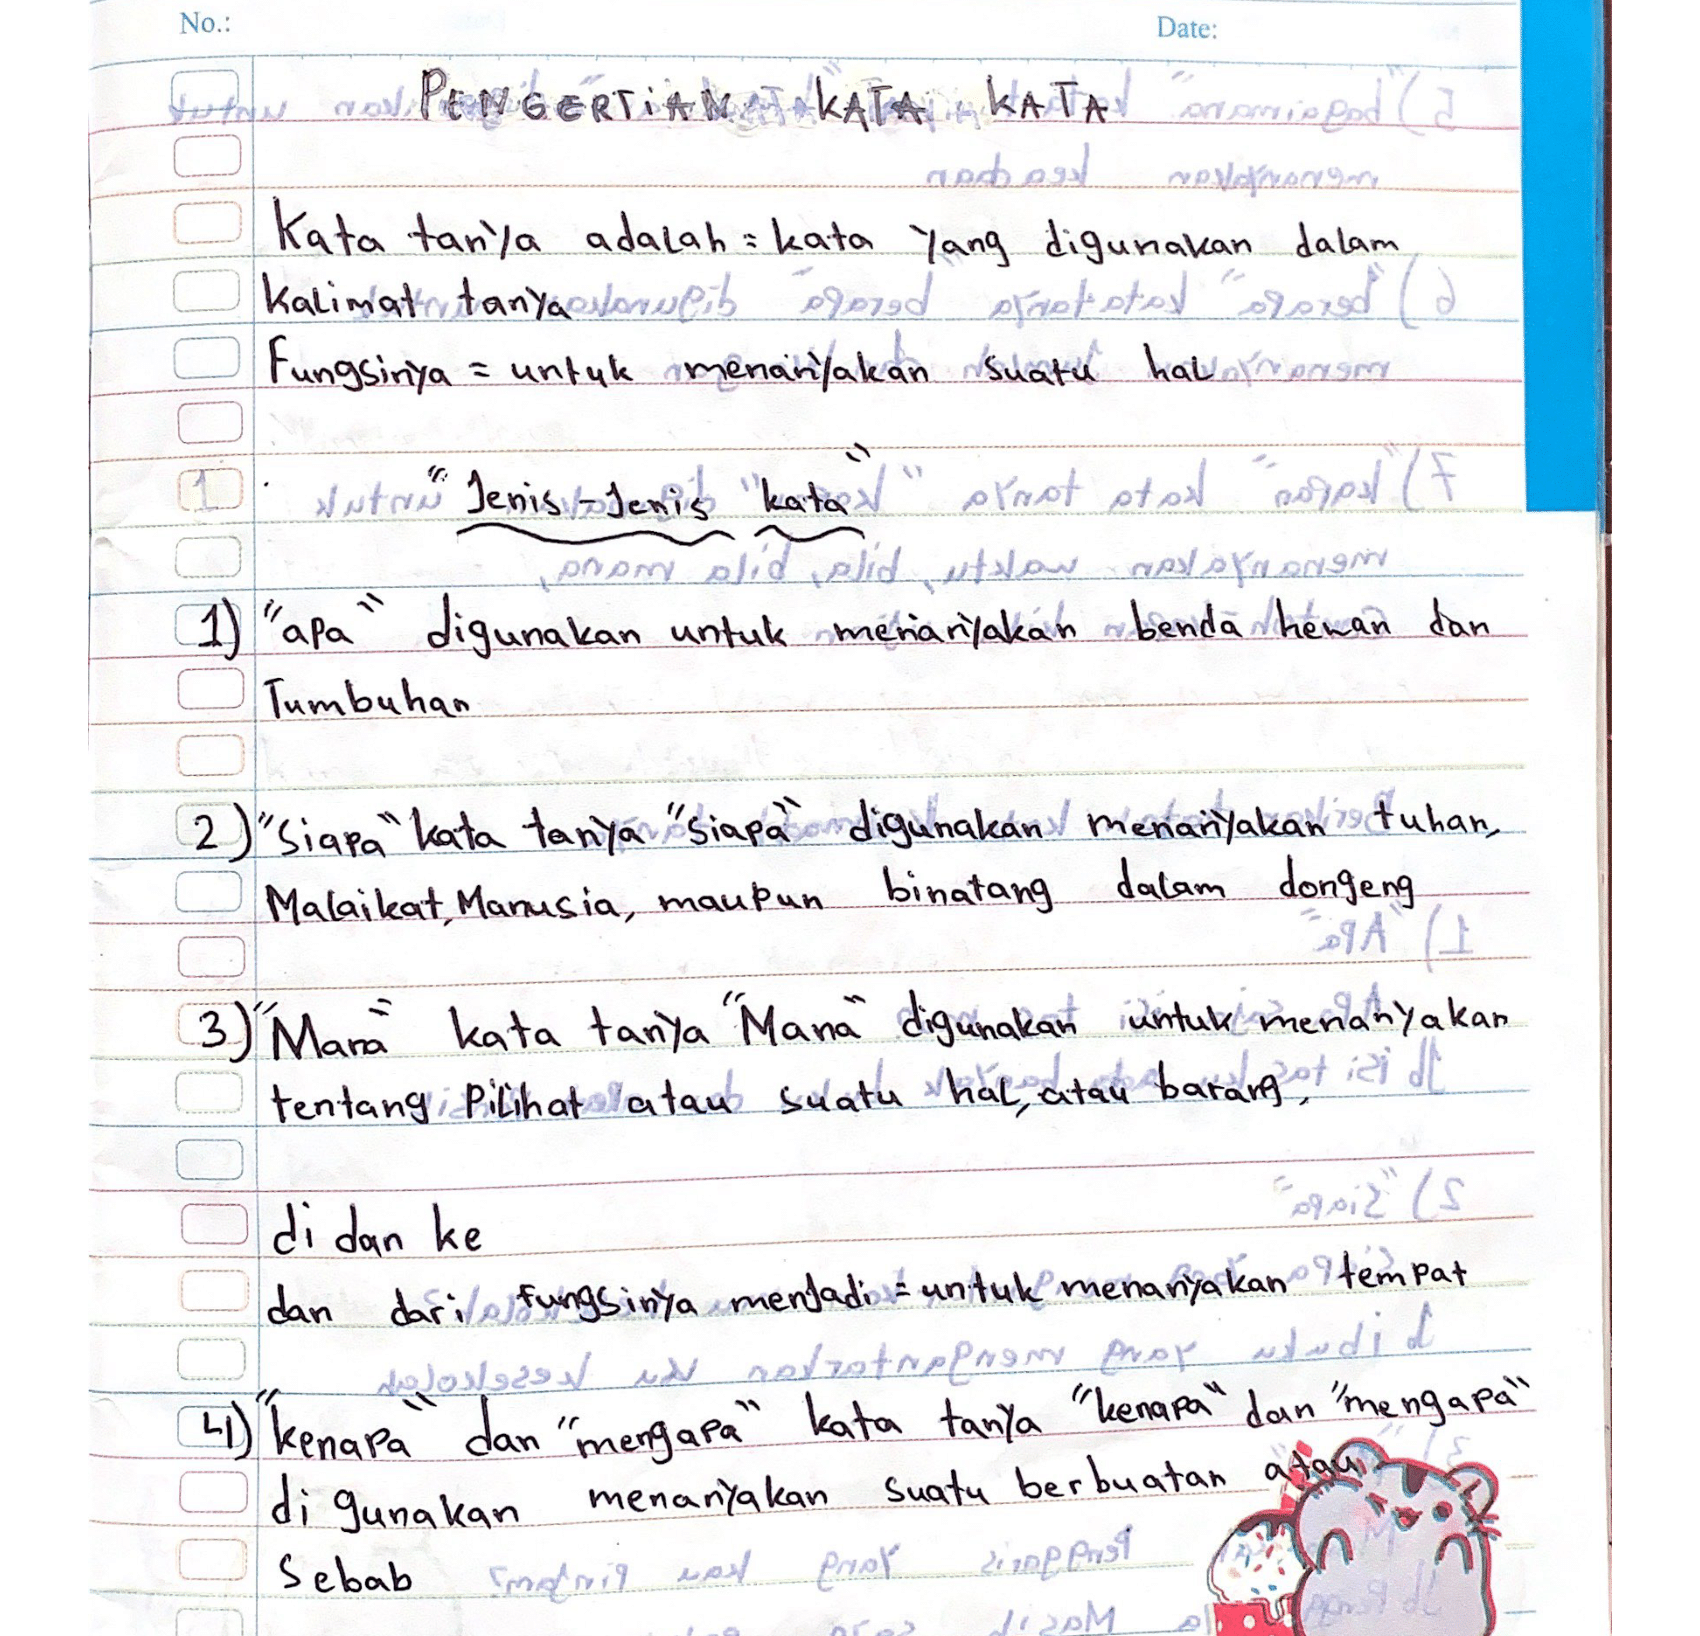 No.:
Date:
PENGERTIAN KATA-KATA
Kata tanya adalah = kata yang digunakan dalam
Kalimat tanya
Fungsinya = untuk menanyakan suatu hal
"Jenis-Jenis kata"
1) "apa" digunakan untuk menanyakan benda hewan dan
Tumbuhan
2) "Siapa" kata tanya "Siapa" digunakan menanyakan tuhan,
Malaikat, Manusia, maupun binatang dalam dongeng
3) "Mana" kata tanya "Mana" digunakan untuk menanyakan
tentang Pilihat atau suatu hal, atau barang,
di dan ke
dan dari fungsinya menJadi = untuk menanyakan tempat
4) "kenapa" dan "mengapa" kata tanya "kenapa" dan "mengapa"
di gunakan menanyakan suatu berbuatan atau
Sebab